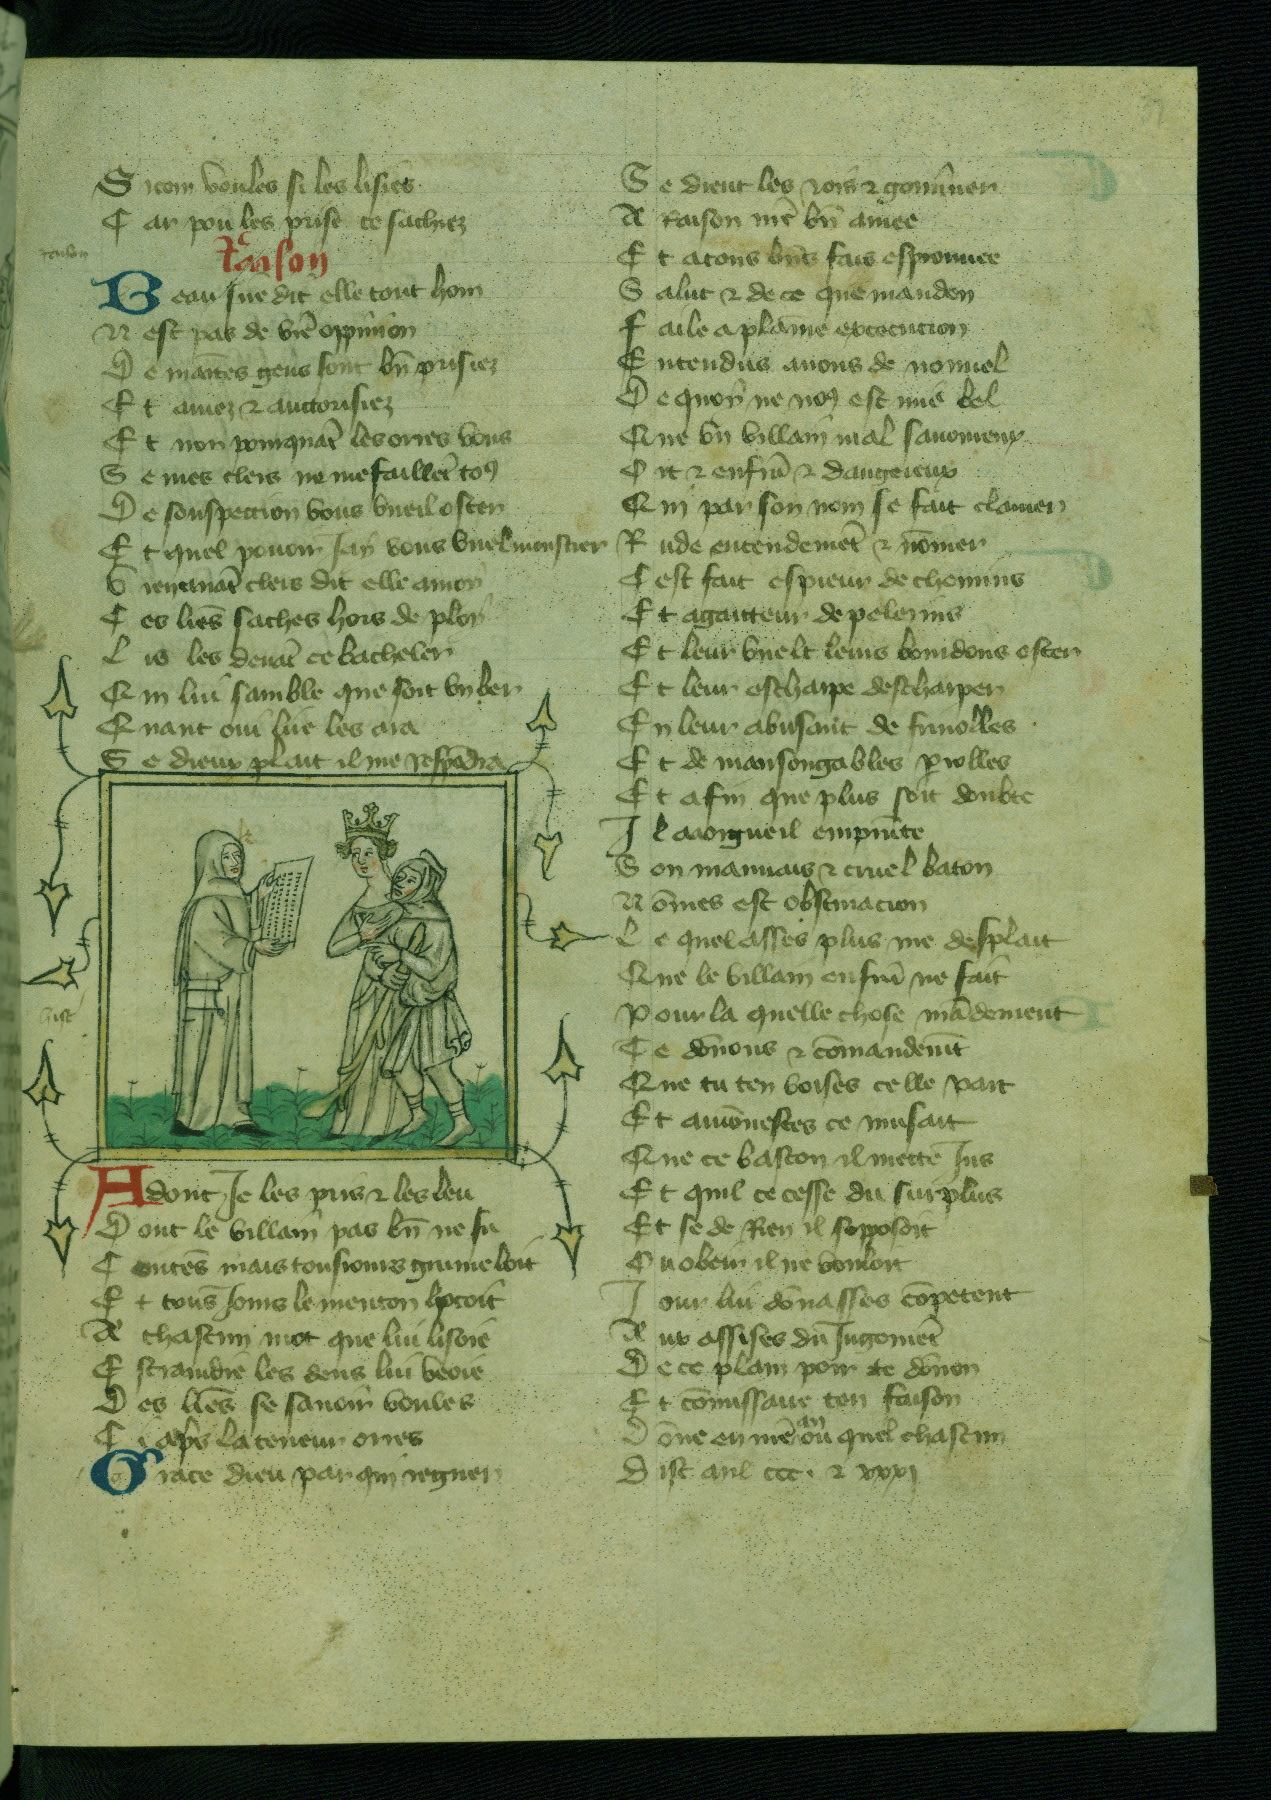 S icom voules si les lisies
C ar pou les prise ce sachiez
raison
Raison
B eau sire dit elle tout hom
N est pas de vr̄e oppinion
D e maītes gens sont bn̄ prisiez
E t amez ⁊ auctorisiez
E t non pourquāt les orres vous
S e mes clers ne me faillēt toꝯ
D e souspecion vous vueil oster
E t quel pouoir Jay vous vuel monstrer
V ien auāt clers dit elle amoy
C es lr̄es saches hors de ploy
L is les deuāt ce bacheler
Q ui lui samble que soit vn ber
Q uant oui lire les ara
S e dieux plait il me respōdra
hist
A dont Je les pris ⁊ les leu
D ont le villain pas bn̄ ne fu
C ontēs mais tousiours grumeloit
E t tous Jours le menton hocoit
A chascun mot que lui lisoie
E straindre les dens lui veoie
D es lr̄es se sauoir voules
C i apēs la teneur orres
G race dieu par qui regner
S e dient les rois ⁊ gouūner
A Raison nr̄e bn̄ amee
E t atous bn̄s fais esprouuee
S alut ⁊ de ce que manden
F aile a plainne execucion
E ntendus auons de nouuel
D e quoy ne noꝯ est mie bel
Q ue vn villain mal sauoureux
O rt ⁊ enfrū ⁊ daugereux
Q ui par son nom se fait clamer
R ude entendemēt ⁊ nōmer
C est fait espieur de chemins
E t agaitteur de pelerins
E t leur vuelt leurs bourdons oster
E t leur escharpe descharper
E n leur abusant de friuolles
E t de mansongables ꝑolles
E t afin que plus soit doubte
J l a aorgueil emprūte
S on mauuais ⁊ cruel baton
N ōmes est obstinacion
L e quel asses plus me desplait
Q ue le villain enfrū ne fait
P our la quelle chose mādement
T e dōnons ⁊ cōmandemt̄
Q ue tu ten voises celle part
E t amōnestes ce musart
Q ue ce baston il mette Jus
E t quil ce cesse du surplus
E t se de Rien il sopposoit
O u obeir il ne vouloit
J our lui dōnasses cōpetent
A ux assises du Jugemēt
D e ce plain pouir te dōnon
E t cōmissaire ton faison
D ōne en nr̄e an ou quel chascun
D ist mil ccc. ⁊ xxxj